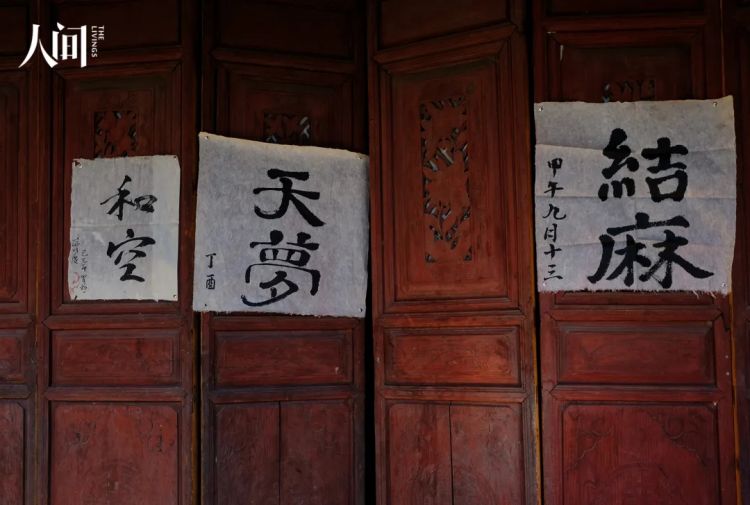 人间
THE LIVINGS
和空
天夢
丁酉
結麻
甲午九月十三